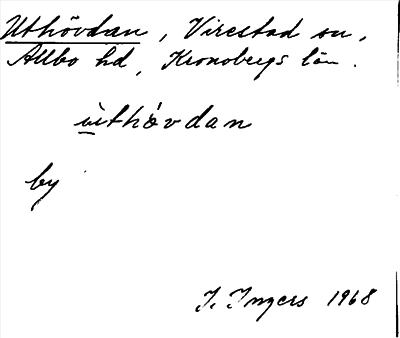 Uthövdan, Virestad sn,
Allbo hd, Kronobergs län.
ùthövdan
by
I. Ingers 1968